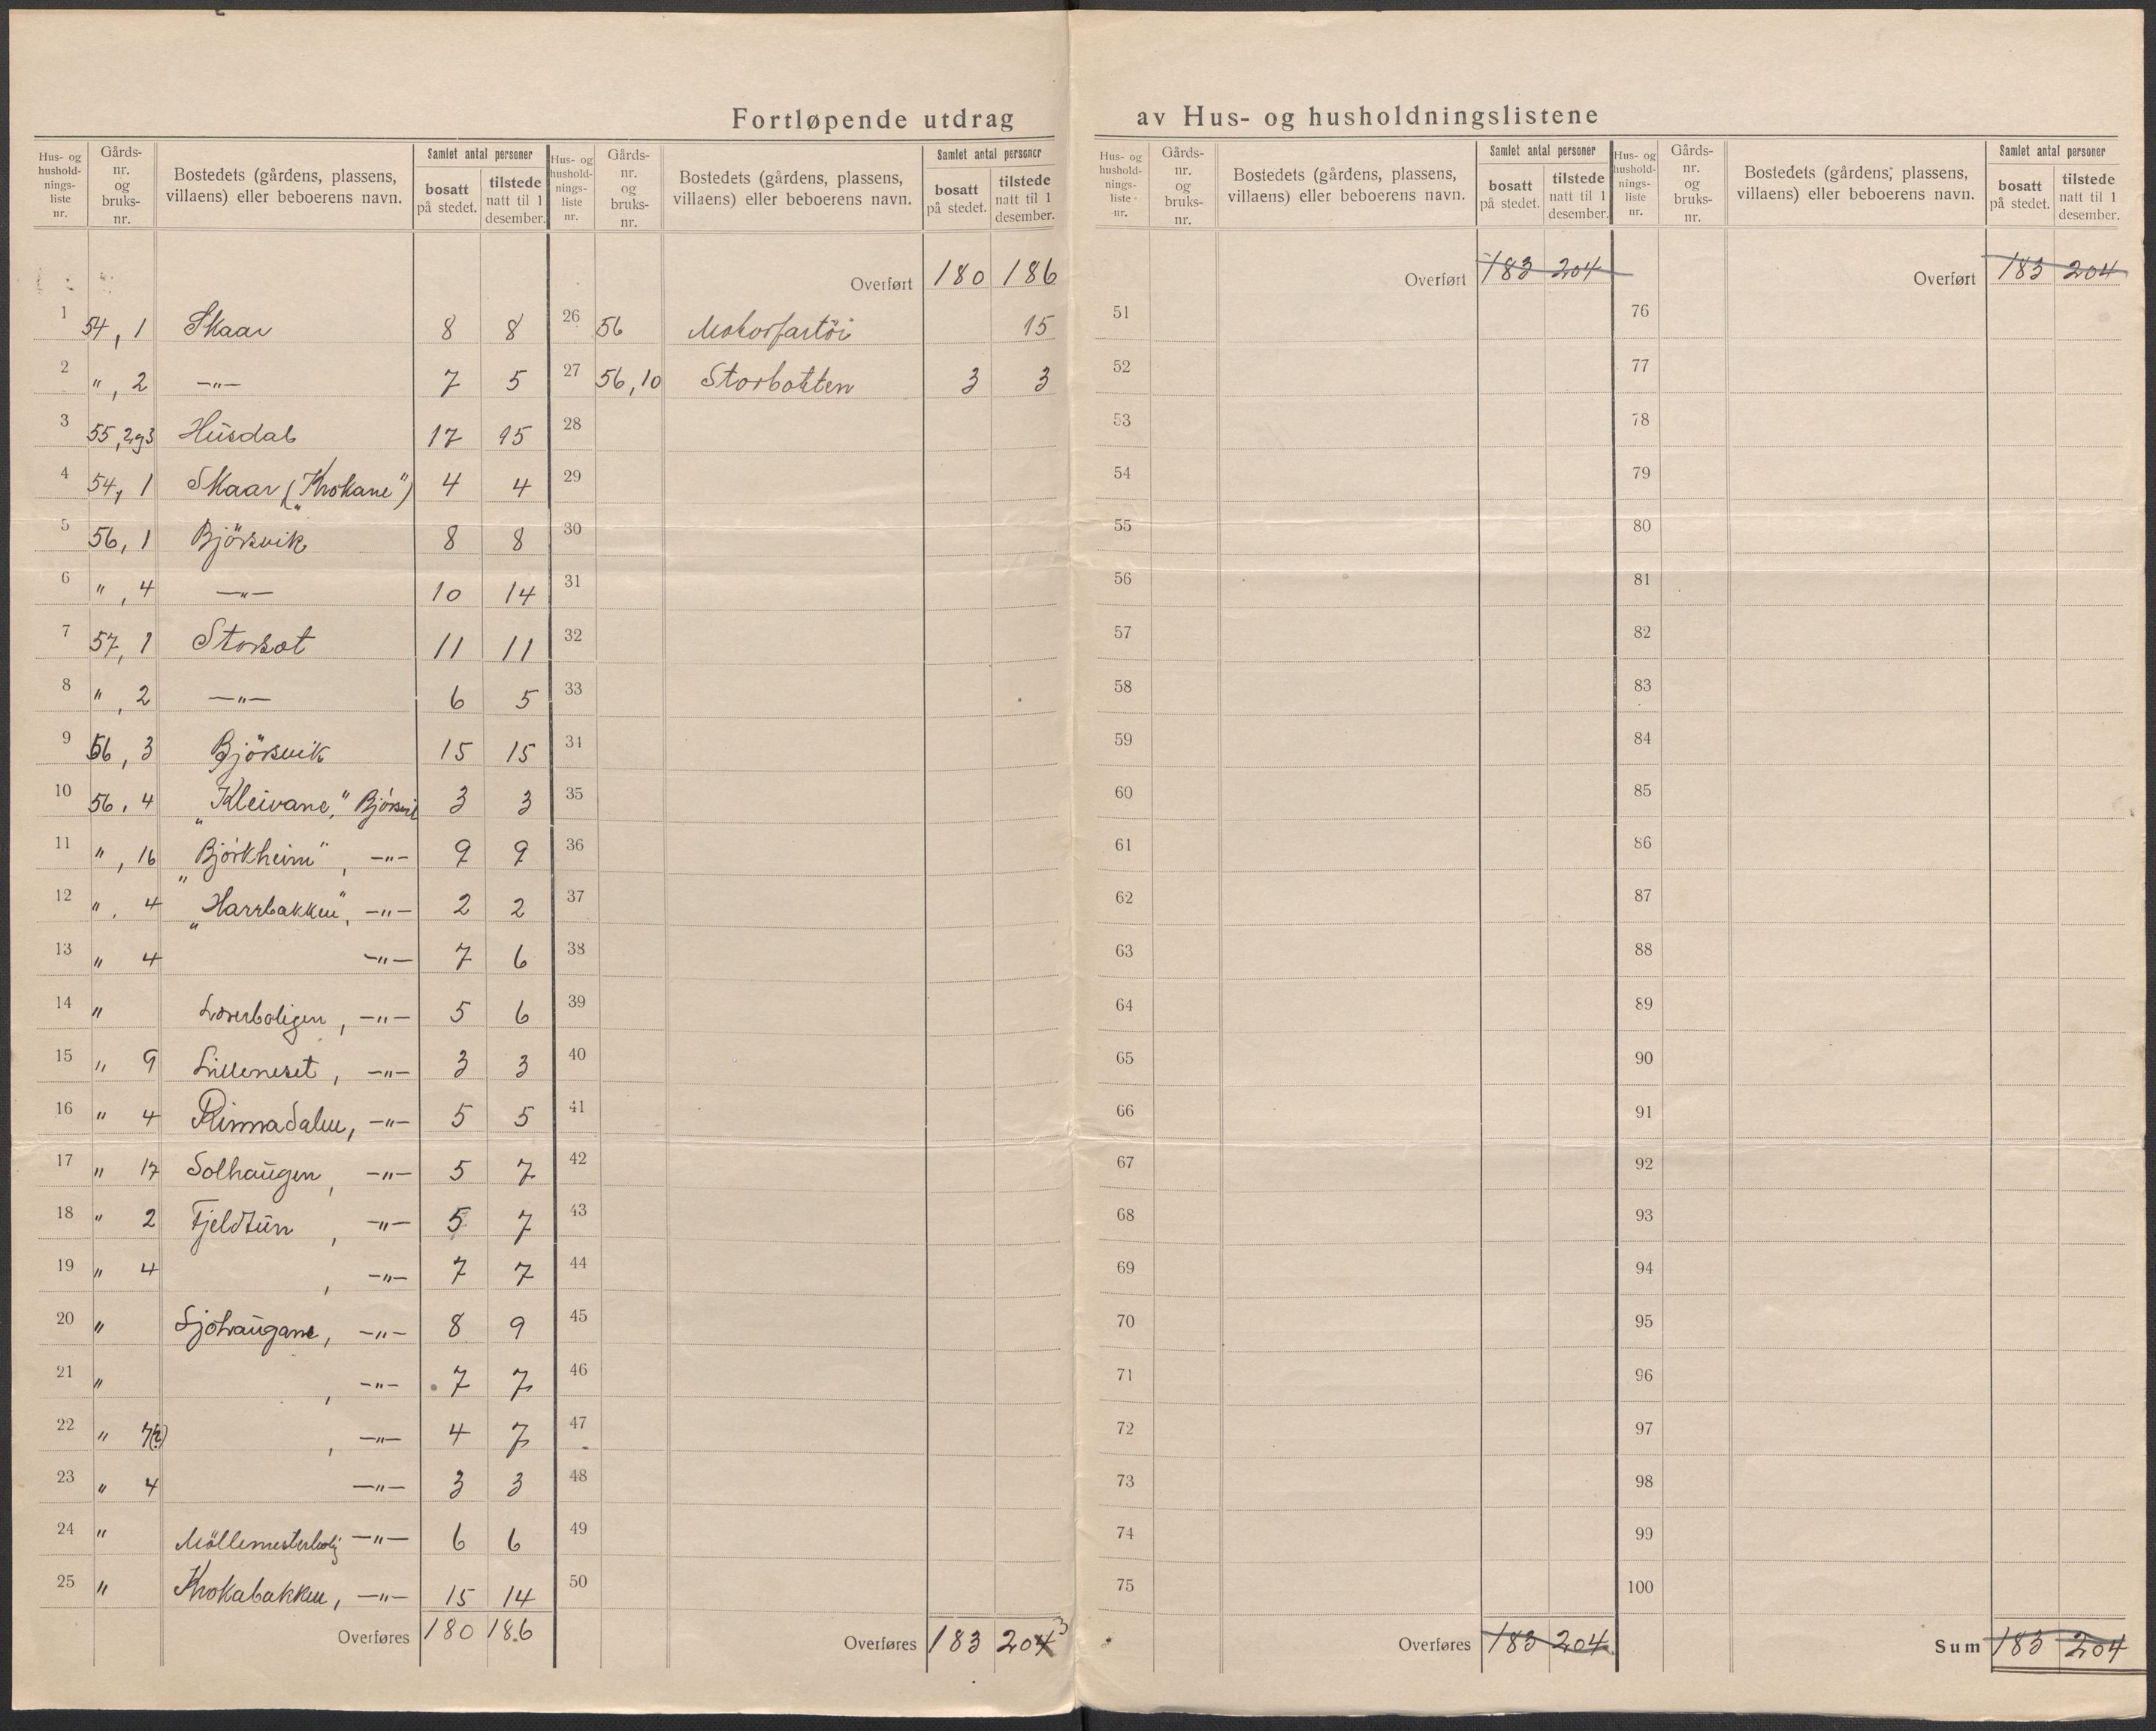 Fortløpende utdrag av Hus- og husholdningslistene
Hus- og husholdnings- liste nr. Gårds- nr. og bruks- nr. Bostedets (gårdens, plassens, villaens) eller beboerens navn. Samlet antal personer bosatt på stedet. tilstede natt til 1 desember.
1 54, 1 Skaar 8 8
2 ", 2 —"— 7 5
3 55, 2og3 Husdal 17 15
4 54, 1 Skaar („Krokane") 4 4
5 56, 1 Björsvik 8 8
6 ", 4 —"— 10 14
7 57, 1 Storset 11 11
8 ", 2 —"— 6 5
9 56, 3 Björsvik 15 15
10 56, 4 „Kleivane," Björsvik 3 3
11 ", 16 „Björkheim", —"— 9 9
12 ", 4 „Harrbakken", —"— 2 2
13 " 4 —"— 7 6
14 " Lærerboligen, —"— 5 6
15 " 9 Lilleneset, —"— 3 3
16 " 4 Rinnadalen, —"— 5 5
17 " 17 Solhaugen, —"— 5 7
18 " 2 Fjeldtun, —"— 5 7
19 " 4 , —"— 7 7
20 " Sjöhaugane, —"— 8 9
21 " , —"— 7 7
22 " 7(2) , —"— 4 7
23 " 4 —"— 3 3
24 " Möllemesterbolig —"— 6 6
25 " Krokabakken, —"— 15 14
Overføres 180 186
Hus- og husholdnings- liste nr. Gårds- nr. og bruks- nr. Bostedets (gårdens, plassens, villaens) eller beboerens navn. Samlet antal personer bosatt på stedet. tilstede natt til 1 desember.
Overført 180 186
26 56 Motorfartöi 15
27 56, 10 Storbotten 3 3
28
29
30
31
32
33
34
35
36
37
38
39
40
41
42
43
44
45
46
47
48
49
50
Overføres 183 204 3
Hus- og husholdnings- liste nr. Gårds- nr. og bruks- nr. Bostedets (gårdens, plassens, villaens) eller beboerens navn. Samlet antal personer bosatt på stedet. tilstede natt til 1 desember.
Overført 183 204
51
52
53
54
55
56
57
58
59
60
61
62
63
64
65
66
67
68
69
70
71
72
73
74
75
Overføres 183 204
Hus- og husholdnings- liste nr. Gårds- nr. og bruks- nr. Bostedets (gårdens, plassens, villaens) eller beboerens navn. Samlet antal personer bosatt på stedet. tilstede natt til 1 desember.
Overført 183 204
76
77
78
79
80
81
82
83
84
85
86
87
88
89
90
91
92
93
94
95
96
97
98
99
100
Sum 183 204